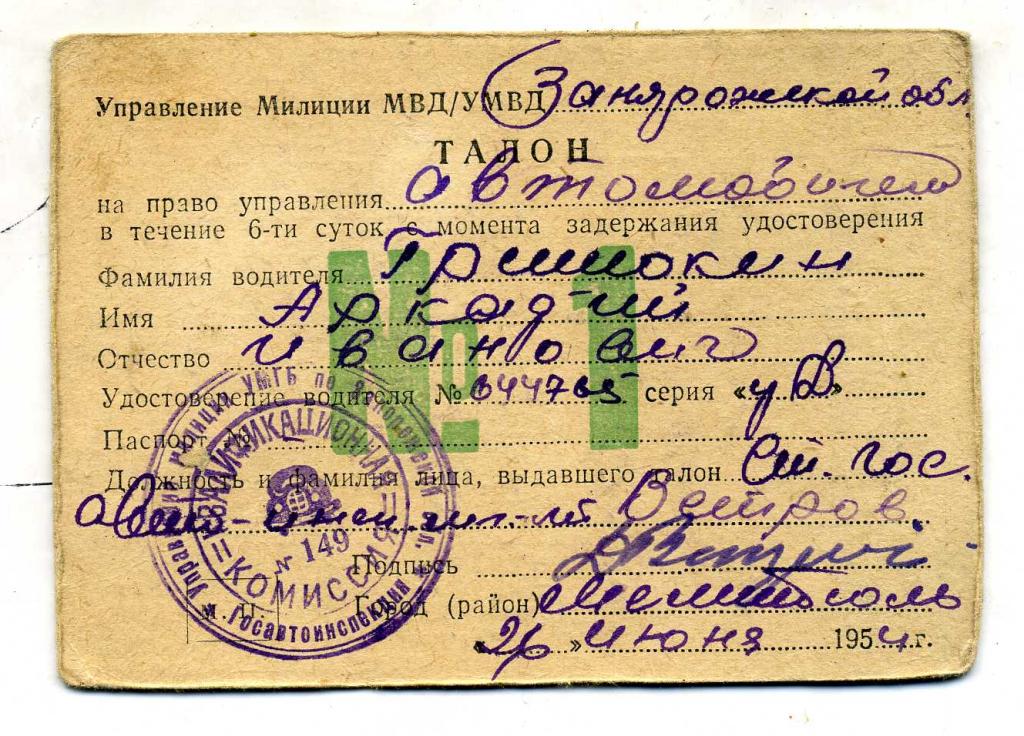 Управление Милиции МВД/УМВД Запорожской обл
ТАЛОН
на право управления автомобилем
в течение 6-ти суток с момента задержания удостоверения
№ 1
Фамилия водителя
Имя Аркадий
Отчество Иванович
Удостоверение водителя № 044765 серия «УД»
Паспорт №
Должность и фамилия лица, выдавшего талон Ст. гос.
Ветров
Подпись
Город (район) Мелитополь
М. П.
« » июня 1954 г.
КВАЛИФИКАЦИОННАЯ
КОМИССИЯ
N 149
милиции УМГБ по Запорожской обл.
Госавтоинспекция